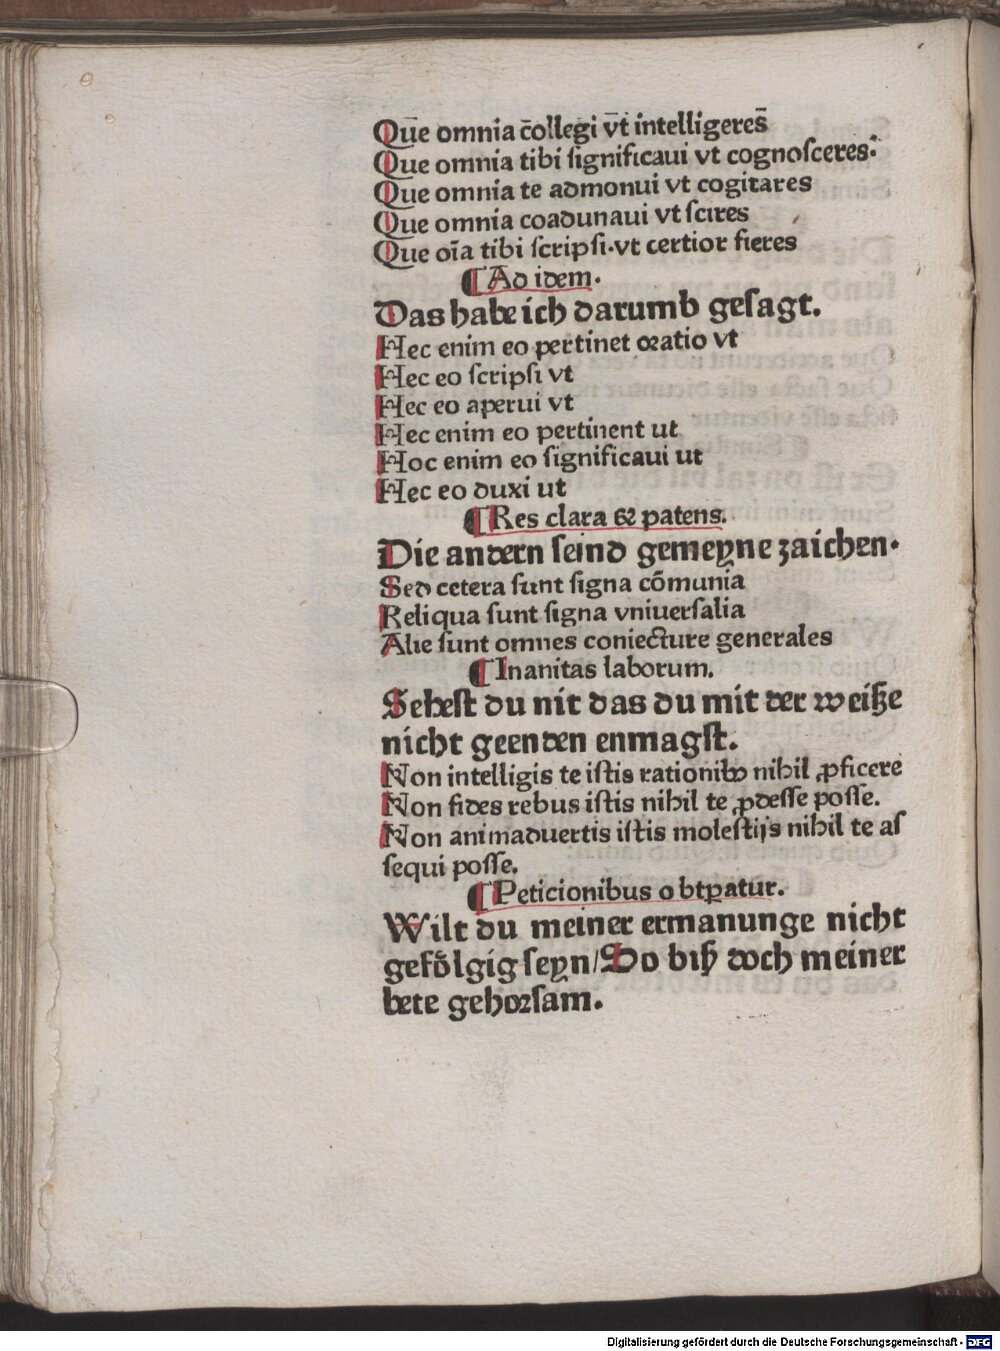 Qūe omnia c̄ollegi v̄t intelligeres̄
Que omnia tibi ſignificaui vt cognoſceres.
Que omnia te admonui vt cogitares
Que omnia coadunaui vt ſcires
Que oīa tibi ſcripſi.vt certior fieres
¶ Ad idem.
Das habe ich darumb geſagt.
Hec enim eo pertinet oꝛatio vt
Hec eo ſcripſi vt
Hec eo aperui vt
Hec enim eo pertinent ut
Hoc enim eo ſignificaui ut
Hec eo duxi ut
¶ Res clara &ꝛ patens.
Die andern ſeind gemeyne zaichen.
Sed cetera ſunt ſigna cōmunia
Reliqua ſunt signa vniuerſalia
Alie ſunt omnes coniecture generales
¶ Inanitas laborum.
Seheſt du nit das du mit der weiße
nicht geenden enmagſt.
Non intelligis te iſtis rationibꝰ nihil ꝓficere
Non fides rebus iſtis nihil te ꝓdeſſe poſſe.
Non animaduertis iſtis moleſtijs nihil te aſ
ſequi poſſe.
¶ Peticionibus obtꝑatur.
Wilt du meiner ermanunge nicht
gefoͤlgig ſeyn/So biß doch meiner
bete gehoꝛſam.
Digitalisierung gefördert durch die Deutsche Forschungsgemeinschaft - DFG